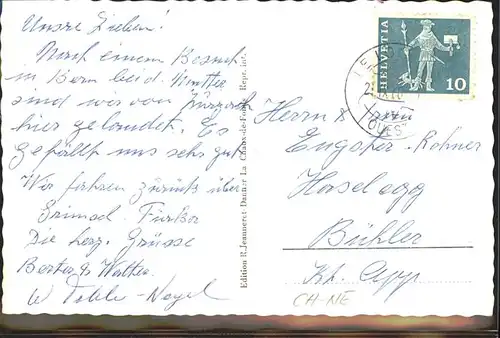 Unsre Lieben!
Nach einem Besuch
in Bern bei d. Mutter
sind wir von
hier gelandet. Es
gefällt uns sehr gut.
Wir fahren zurück über
Grimsel - Furka
Die herz. Grüsse
Berta & Walter
W Tobler-Nagel
Edition R. Jeanneret-Dauner La Chaux-de-Fonds Repr. int.
HELVETIA
10
OUEST
Herrn & Frau
Engster-Rohner
Haselegg
Bühler
Kt. App
CH-NE